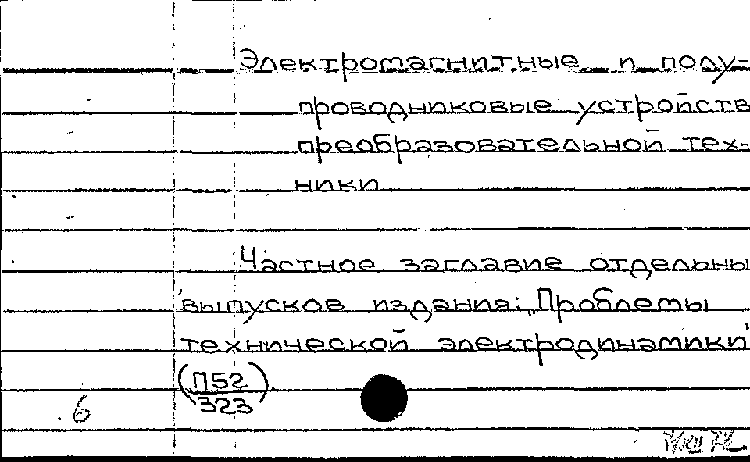 Электромагнитные и полу-
проводниковые устройств
преобразовательной тех-
ники
Частное заглавие отдельны
выпусков издания: „Проблемы
технической электродинамики"
(П52
323)
6